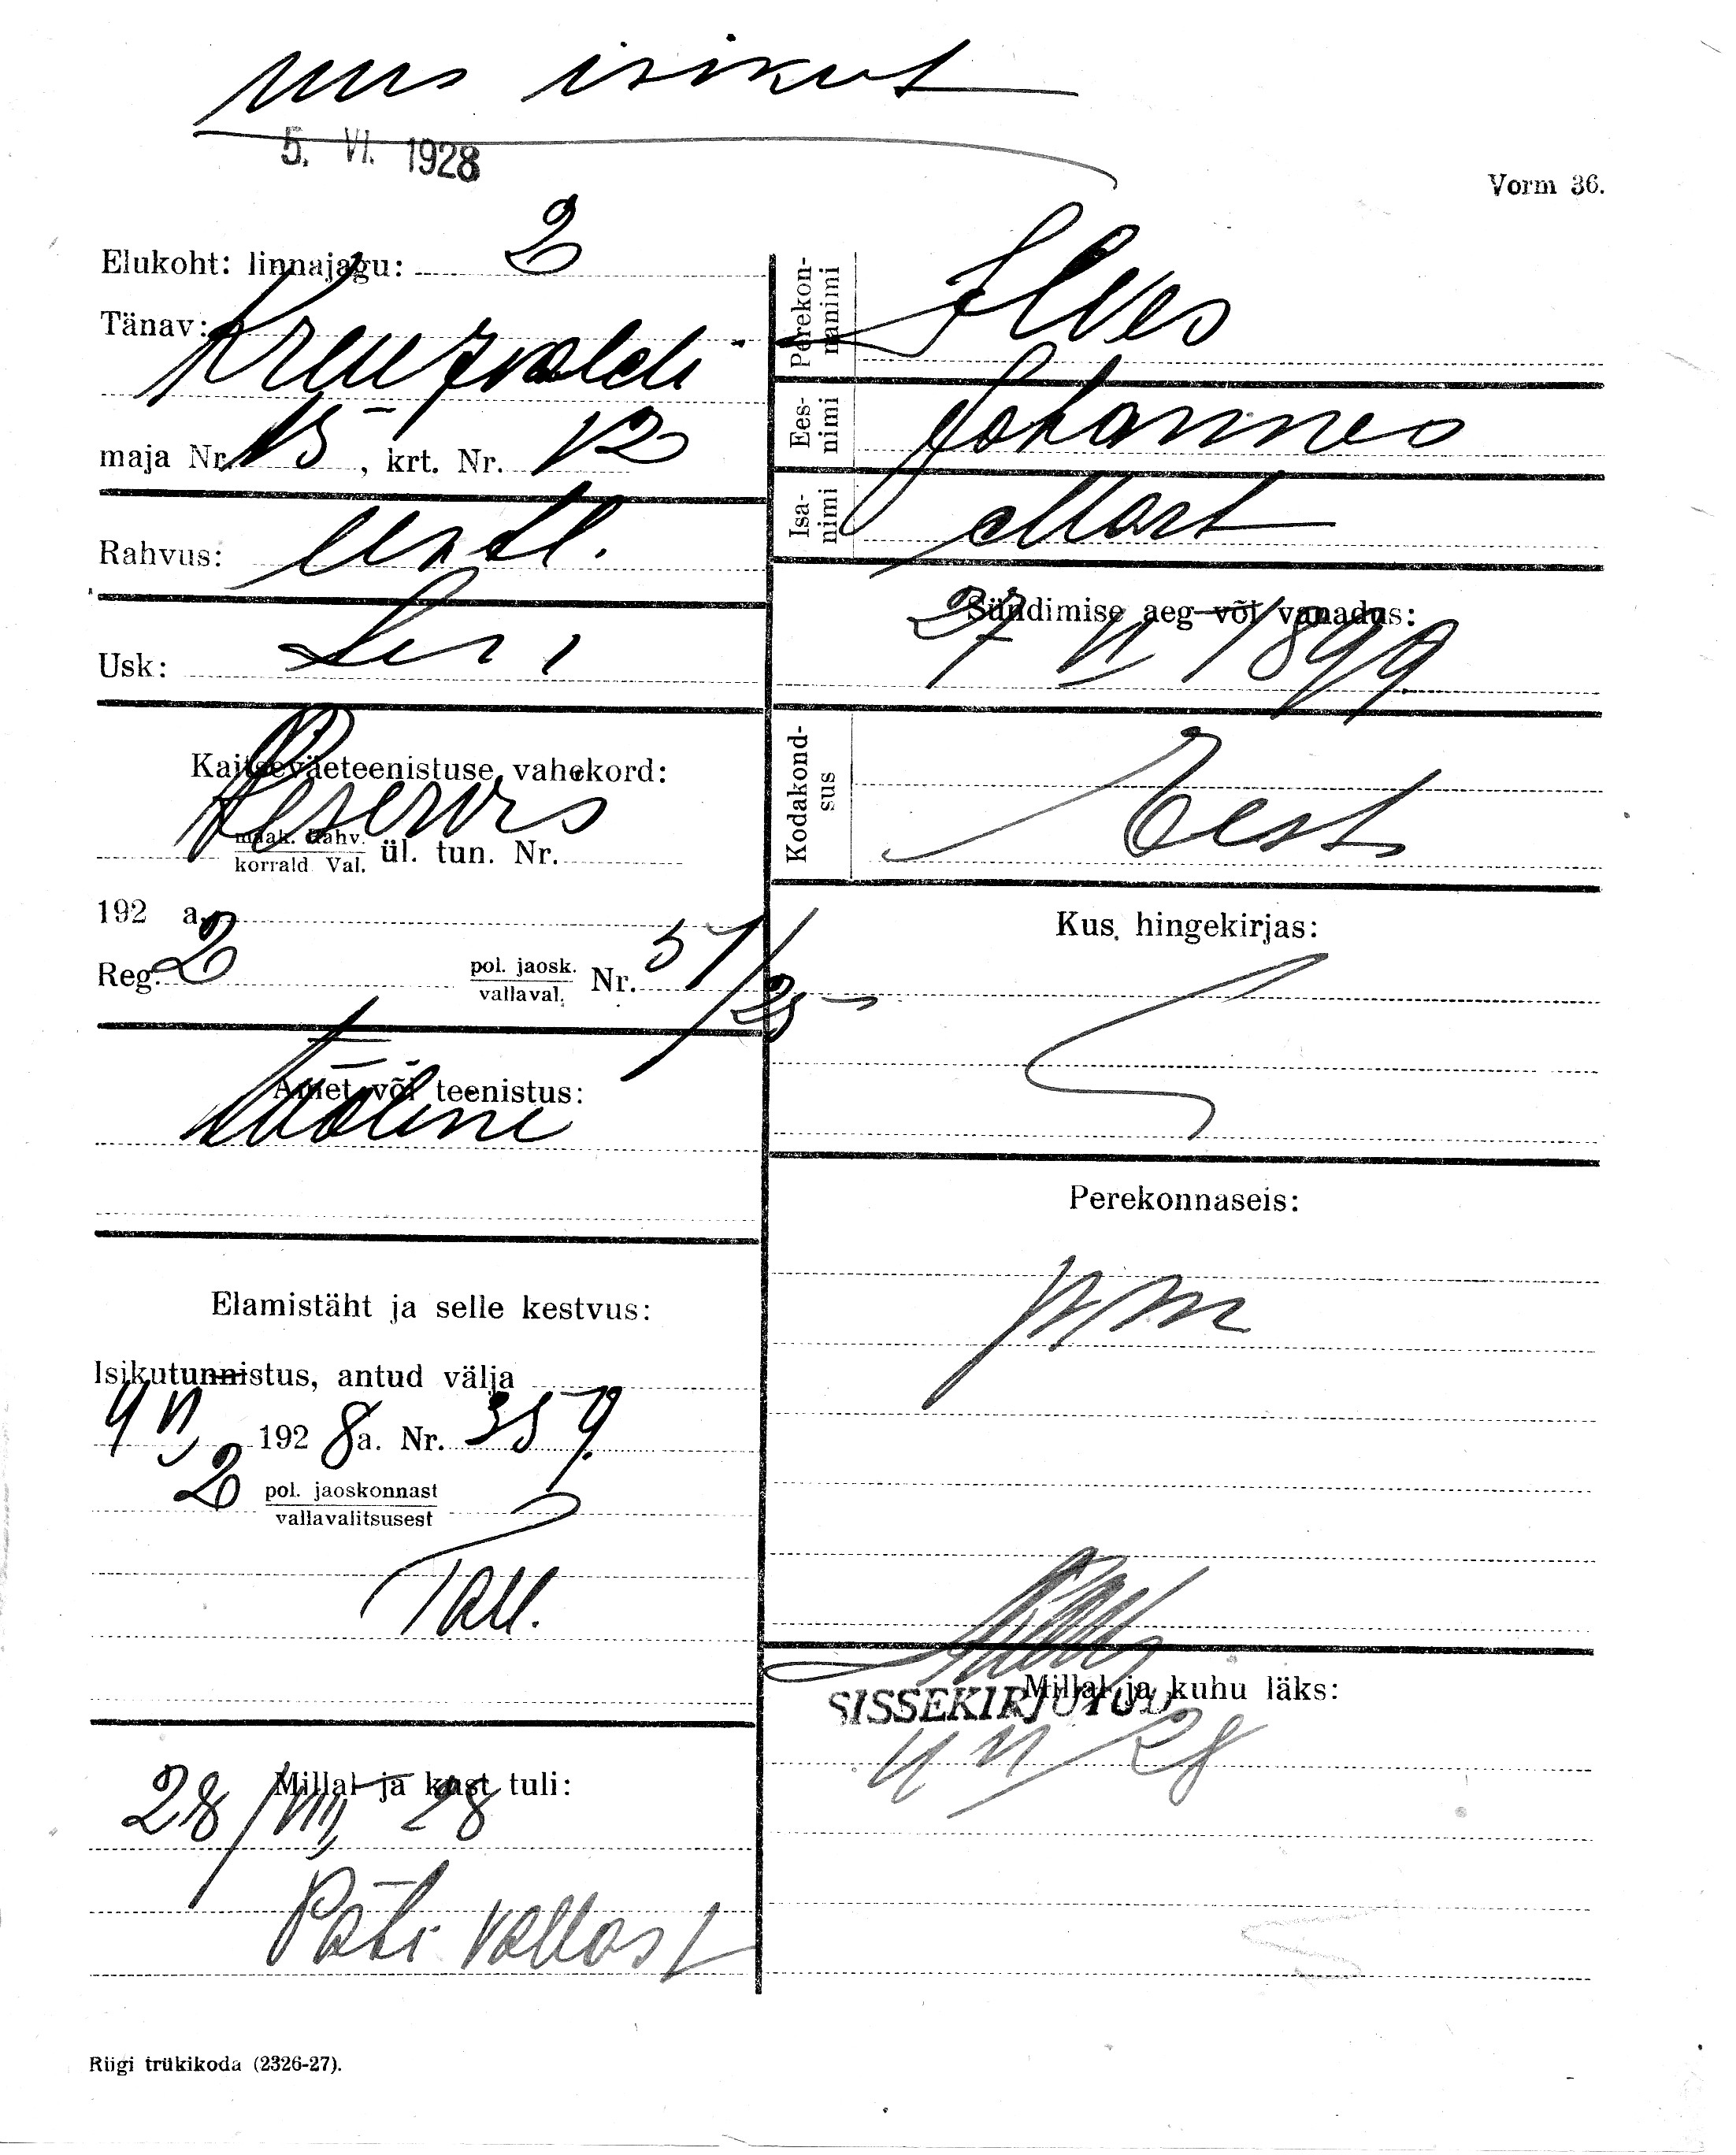 uus isikut
5. VI. 1928
Vorm 36.
Elukoht: linnajagu: 2
Tänav: Kreuzvaldi
maja Nr. 15, krt. Nr. 12
Rahvus: eestl.
Usk: Lut
Kaitseväeteenistuse vahekord:
Reservis
maak. Rahv.
korrald Val. ül. tun. Nr.
192 a.
Reg. 2 pol. jaosk. vallaval. Nr. 51/25
Amet või teenistus:
Tööline
Elamistäht ja selle kestvus:
Isikutunnistus, antud välja
4 VI 1928 a. Nr. 359
2 pol. jaoskonnast
vallavalitsusest
Tall.
Millal ja kust tuli:
28/VIII 28
Päti vallast
Perekonnanimi Ilves
Eesnimi Johannes
Isanimi Mart
Sündimise aeg või vanadus:
27 VI 1899
Kodakondsus Eest
Kus hingekirjas:
Perekonnaseis:
Millal ja kuhu läks:
SISSEKIRJUTUD
4 VI 28
Riigi trükikoda (2326-27).